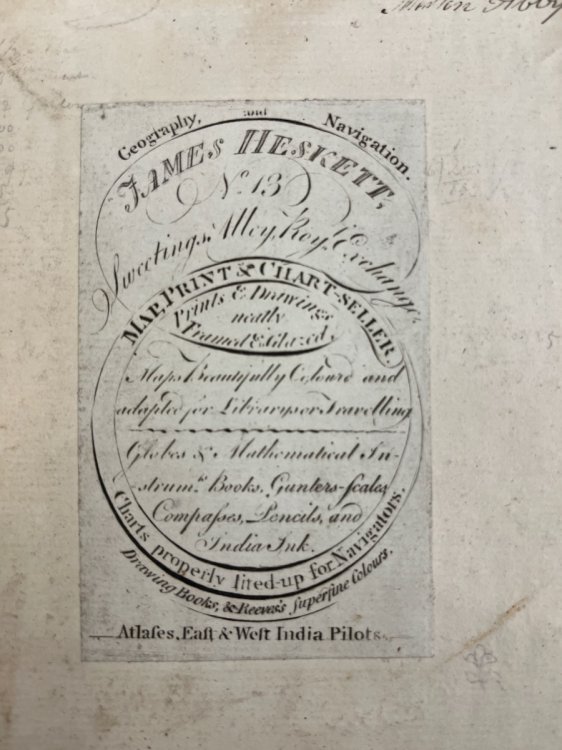 Geography, and Navigation.
JAMES HESKETT,
No. 13
Sweetings Alley, Roy,l Exchange,
MAP, PRINT & CHART-SELLER.
Prints & Drawings
neatly
Framed & Glazed.
Maps Beautifully Colourd and
adapted for Librarys or Travelling
Globes & Mathematical In-
strumts. Books, Gunters-ſcales
Compaſses, Pencils, and
India Ink.
Charts properly fited-up for Navigators.
Drawing Books, & Reeves's ſuperfine Colours.
Atlaſes, Eaſt & Weſt India Pilots